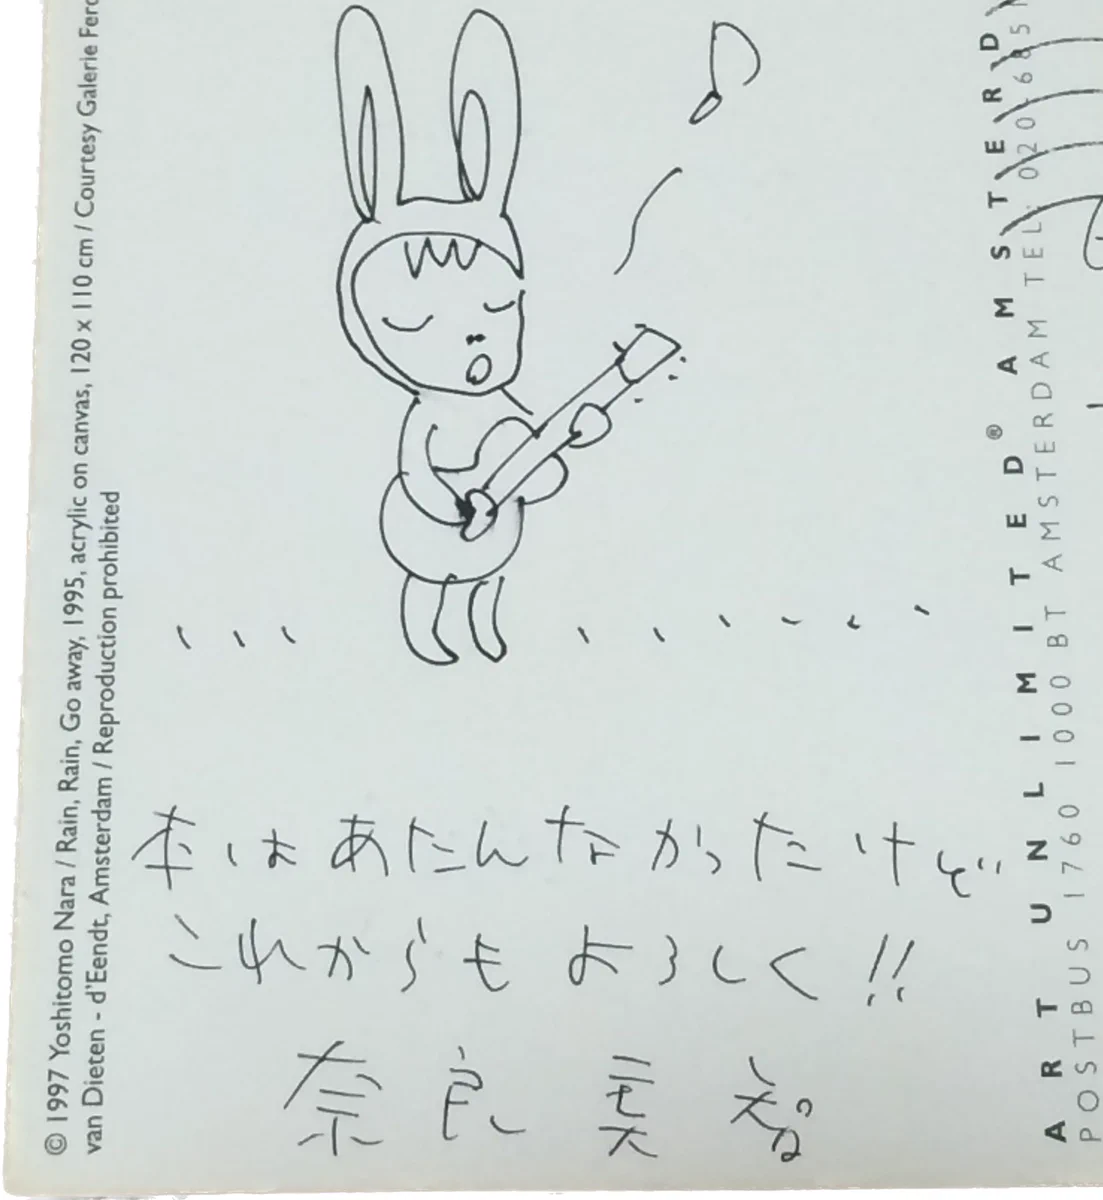 © 1997 Yoshitomo Nara / Rain, Rain, Go away, 1995, acrylic on canvas, 120 x 110 cm / Courtesy Galerie
van Dieten - d'Eendt, Amsterdam / Reproduction prohibited
本はあたんなかったけど
これからもよろしく!!
奈良美智
ART UNLIMITED® AMSTERD
POSTBUS 1760 1000 BT AMSTERDAM TEL: 020-685